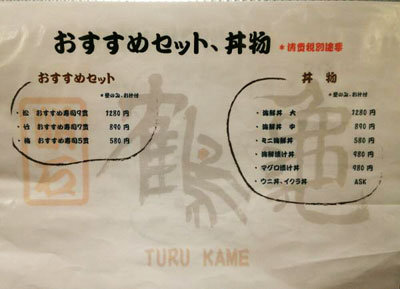 おすすめセット、丼物 *消費税別途要
おすすめセット
*昼のみ、お汁付
・松 おすすめ寿司9貫 1280円
・竹 おすすめ寿司7貫 890円
・梅 おすすめ寿司5貫 580円
丼 物
*昼のみ、お汁付
・海鮮丼 大 1280円
・海鮮丼 中 890円
・ミニ海鮮丼 580円
・海鮮漬け丼 980円
・マグロ漬け丼 980円
・ウニ丼、イクラ丼 ASK
鶴亀
TURU KAME